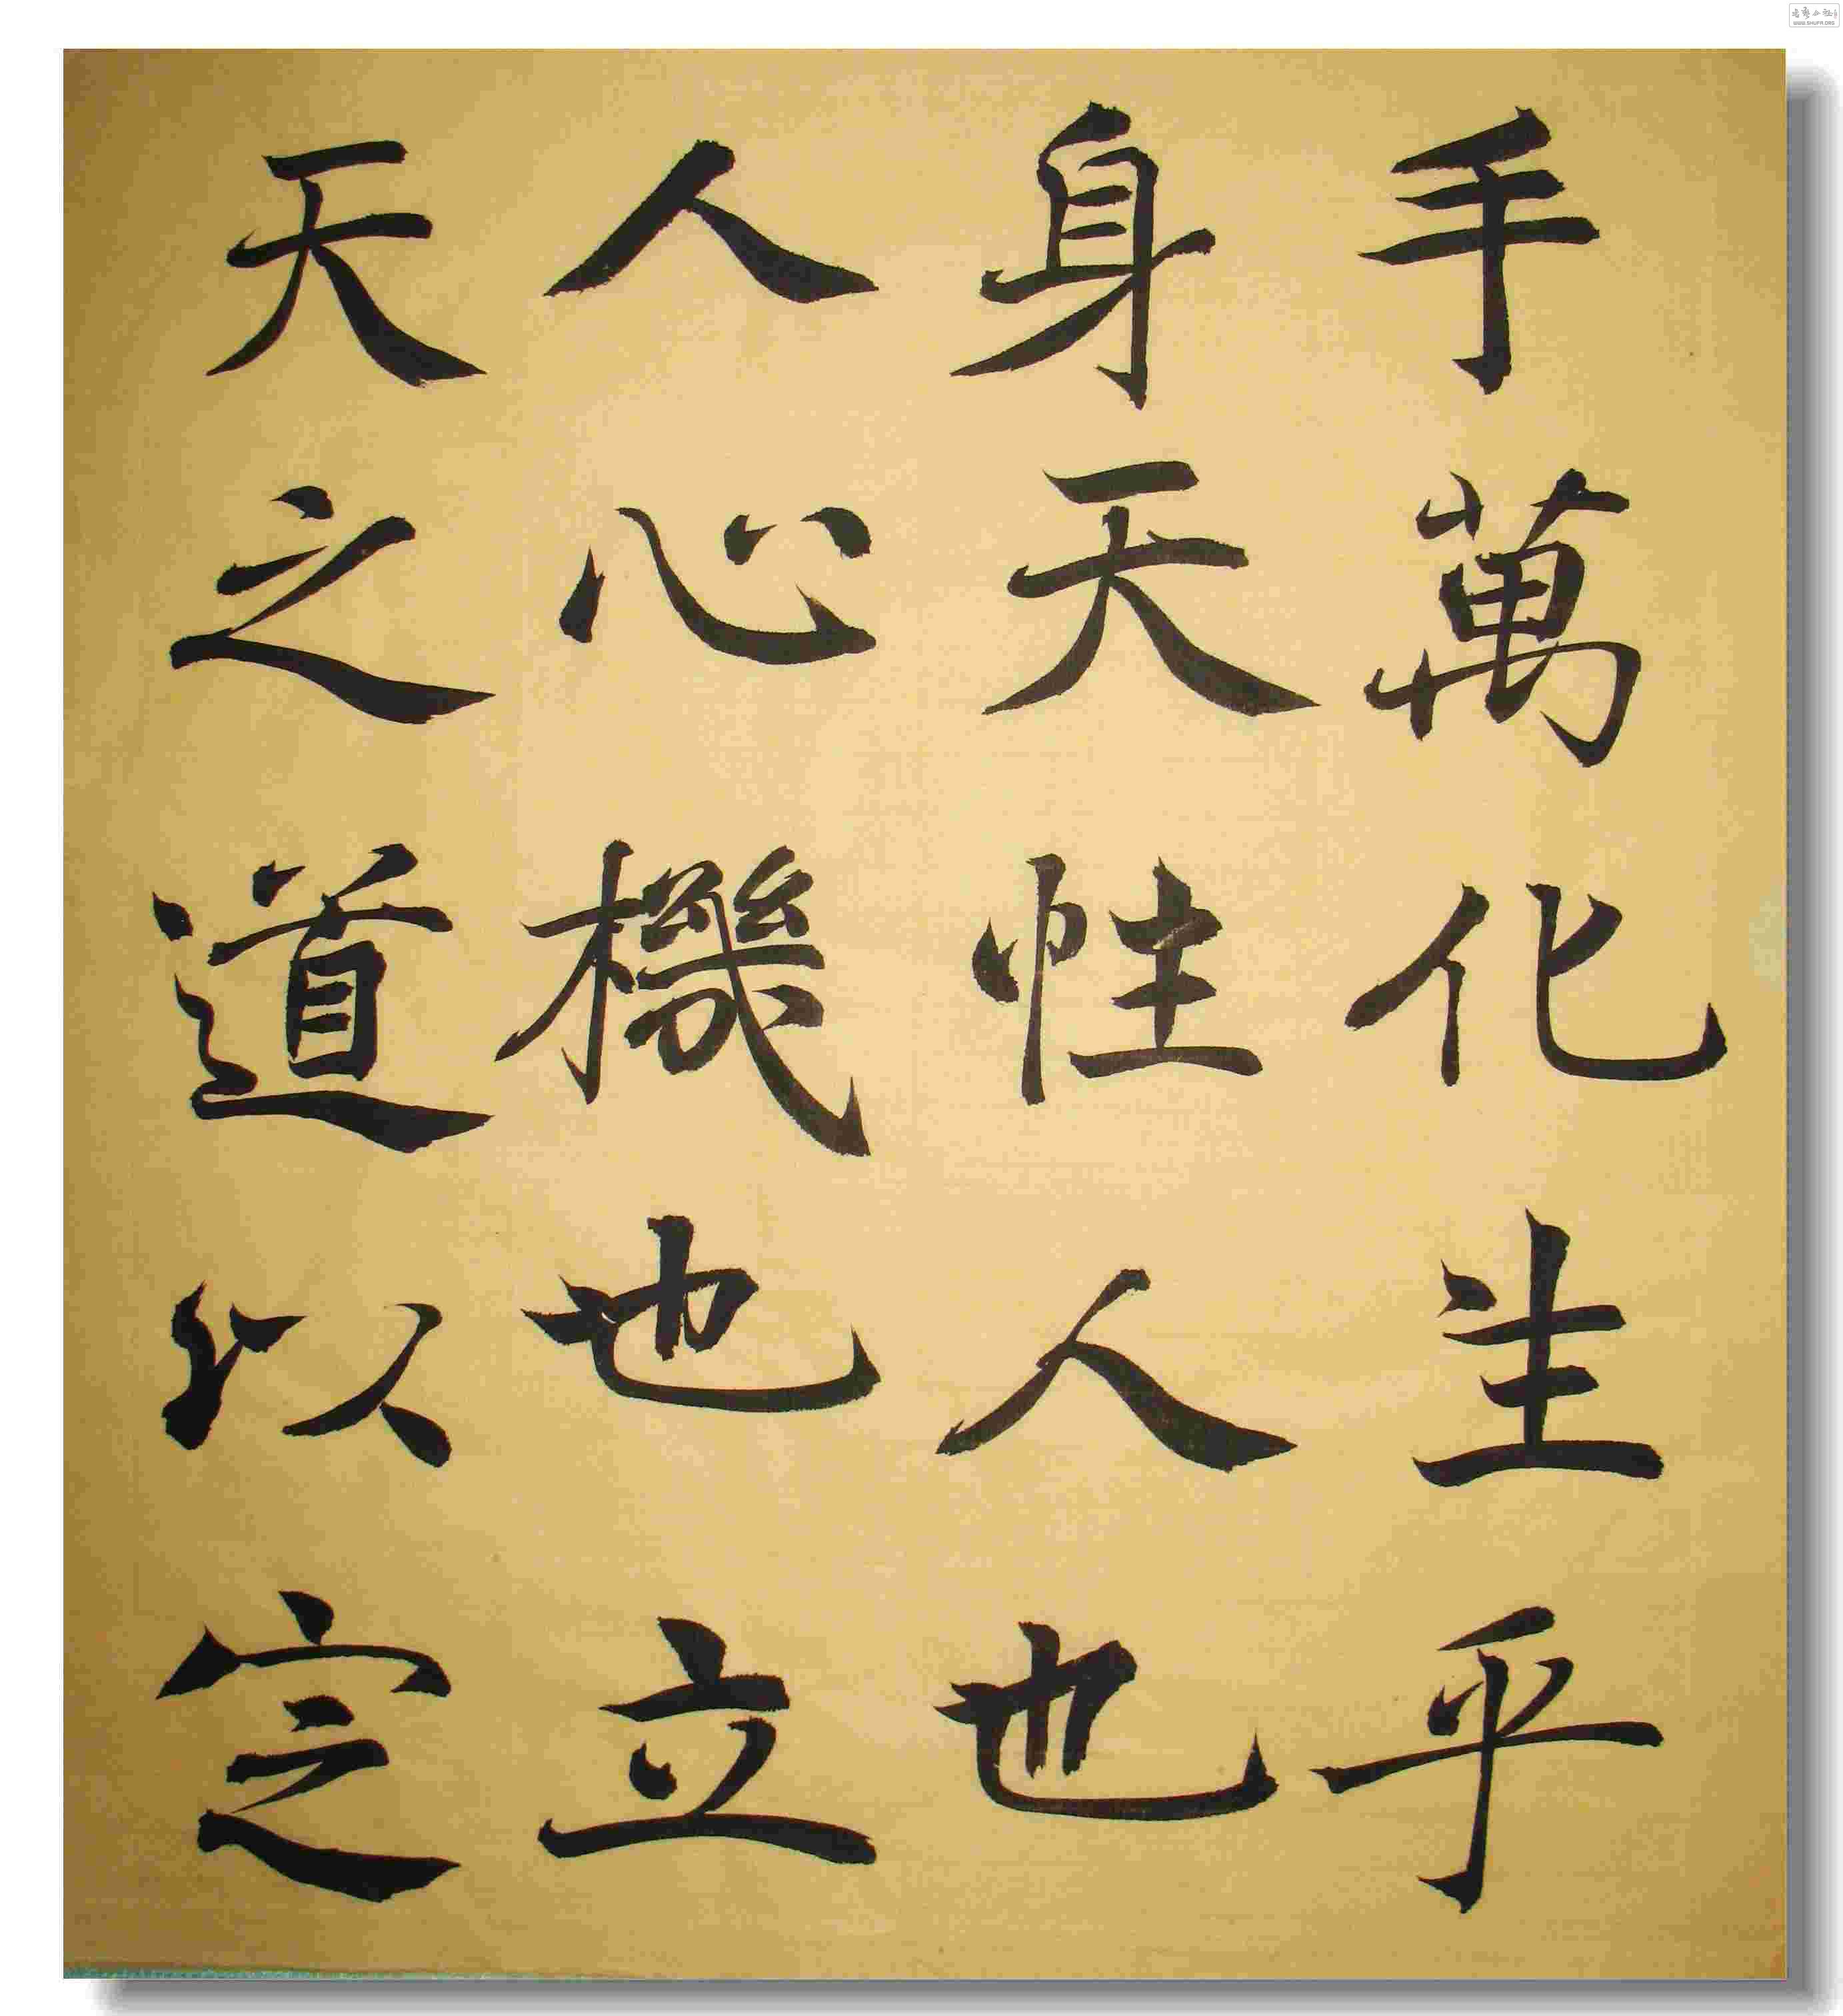 手萬化生乎
身天性人也
人心機也立
天之道以定
WWW.SHUFA.ORG